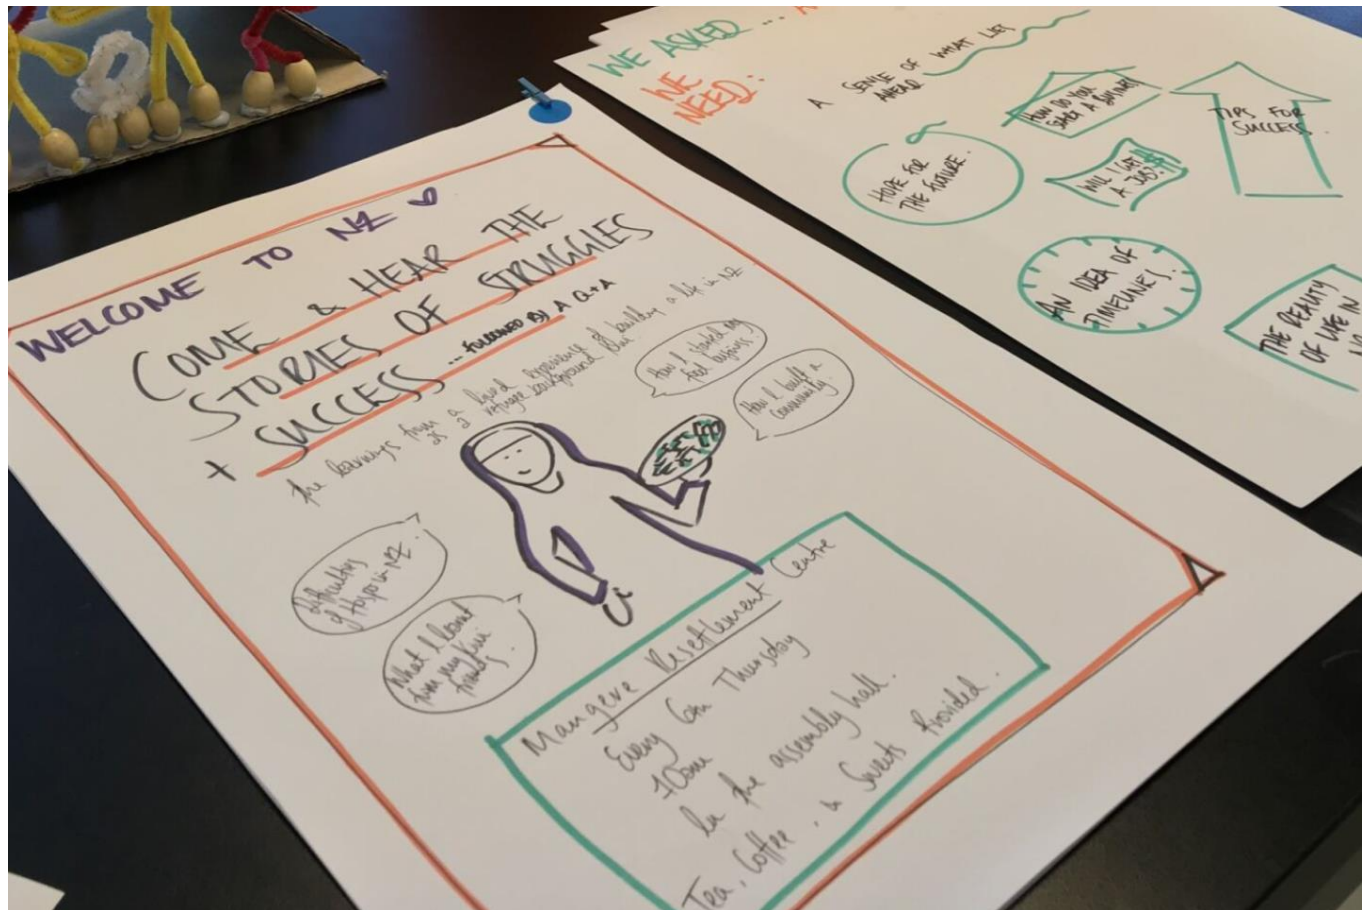 WELCOME TO NZ
COME & HEAR THE
STORIES OF STRUGGLES
+ SUCCESS ... FOLLOWED BY A Q+A
the learnings from a lived experience of building a life in NZ
as a refugee background
How I started my
business.
How I built a
community.
difficulties
of Hospo in NZ.
What I learnt
from my Kiwi
friends.
Mangere Resettlement Centre
Every 6th Thursday
10am
In the assembly hall.
Tea, Coffee, & Sweets Provided.
WE ASKED ...
WE
NEED:
A SENSE OF WHAT LIES
AHEAD
HOPE FOR
THE FUTURE.
HOW DO YOU
START A BUSINESS
WILL I GET
A JOB?
TIPS FOR
SUCCESS.
AN IDEA OF
TIMELINES.
THE REALITY
OF LIFE IN